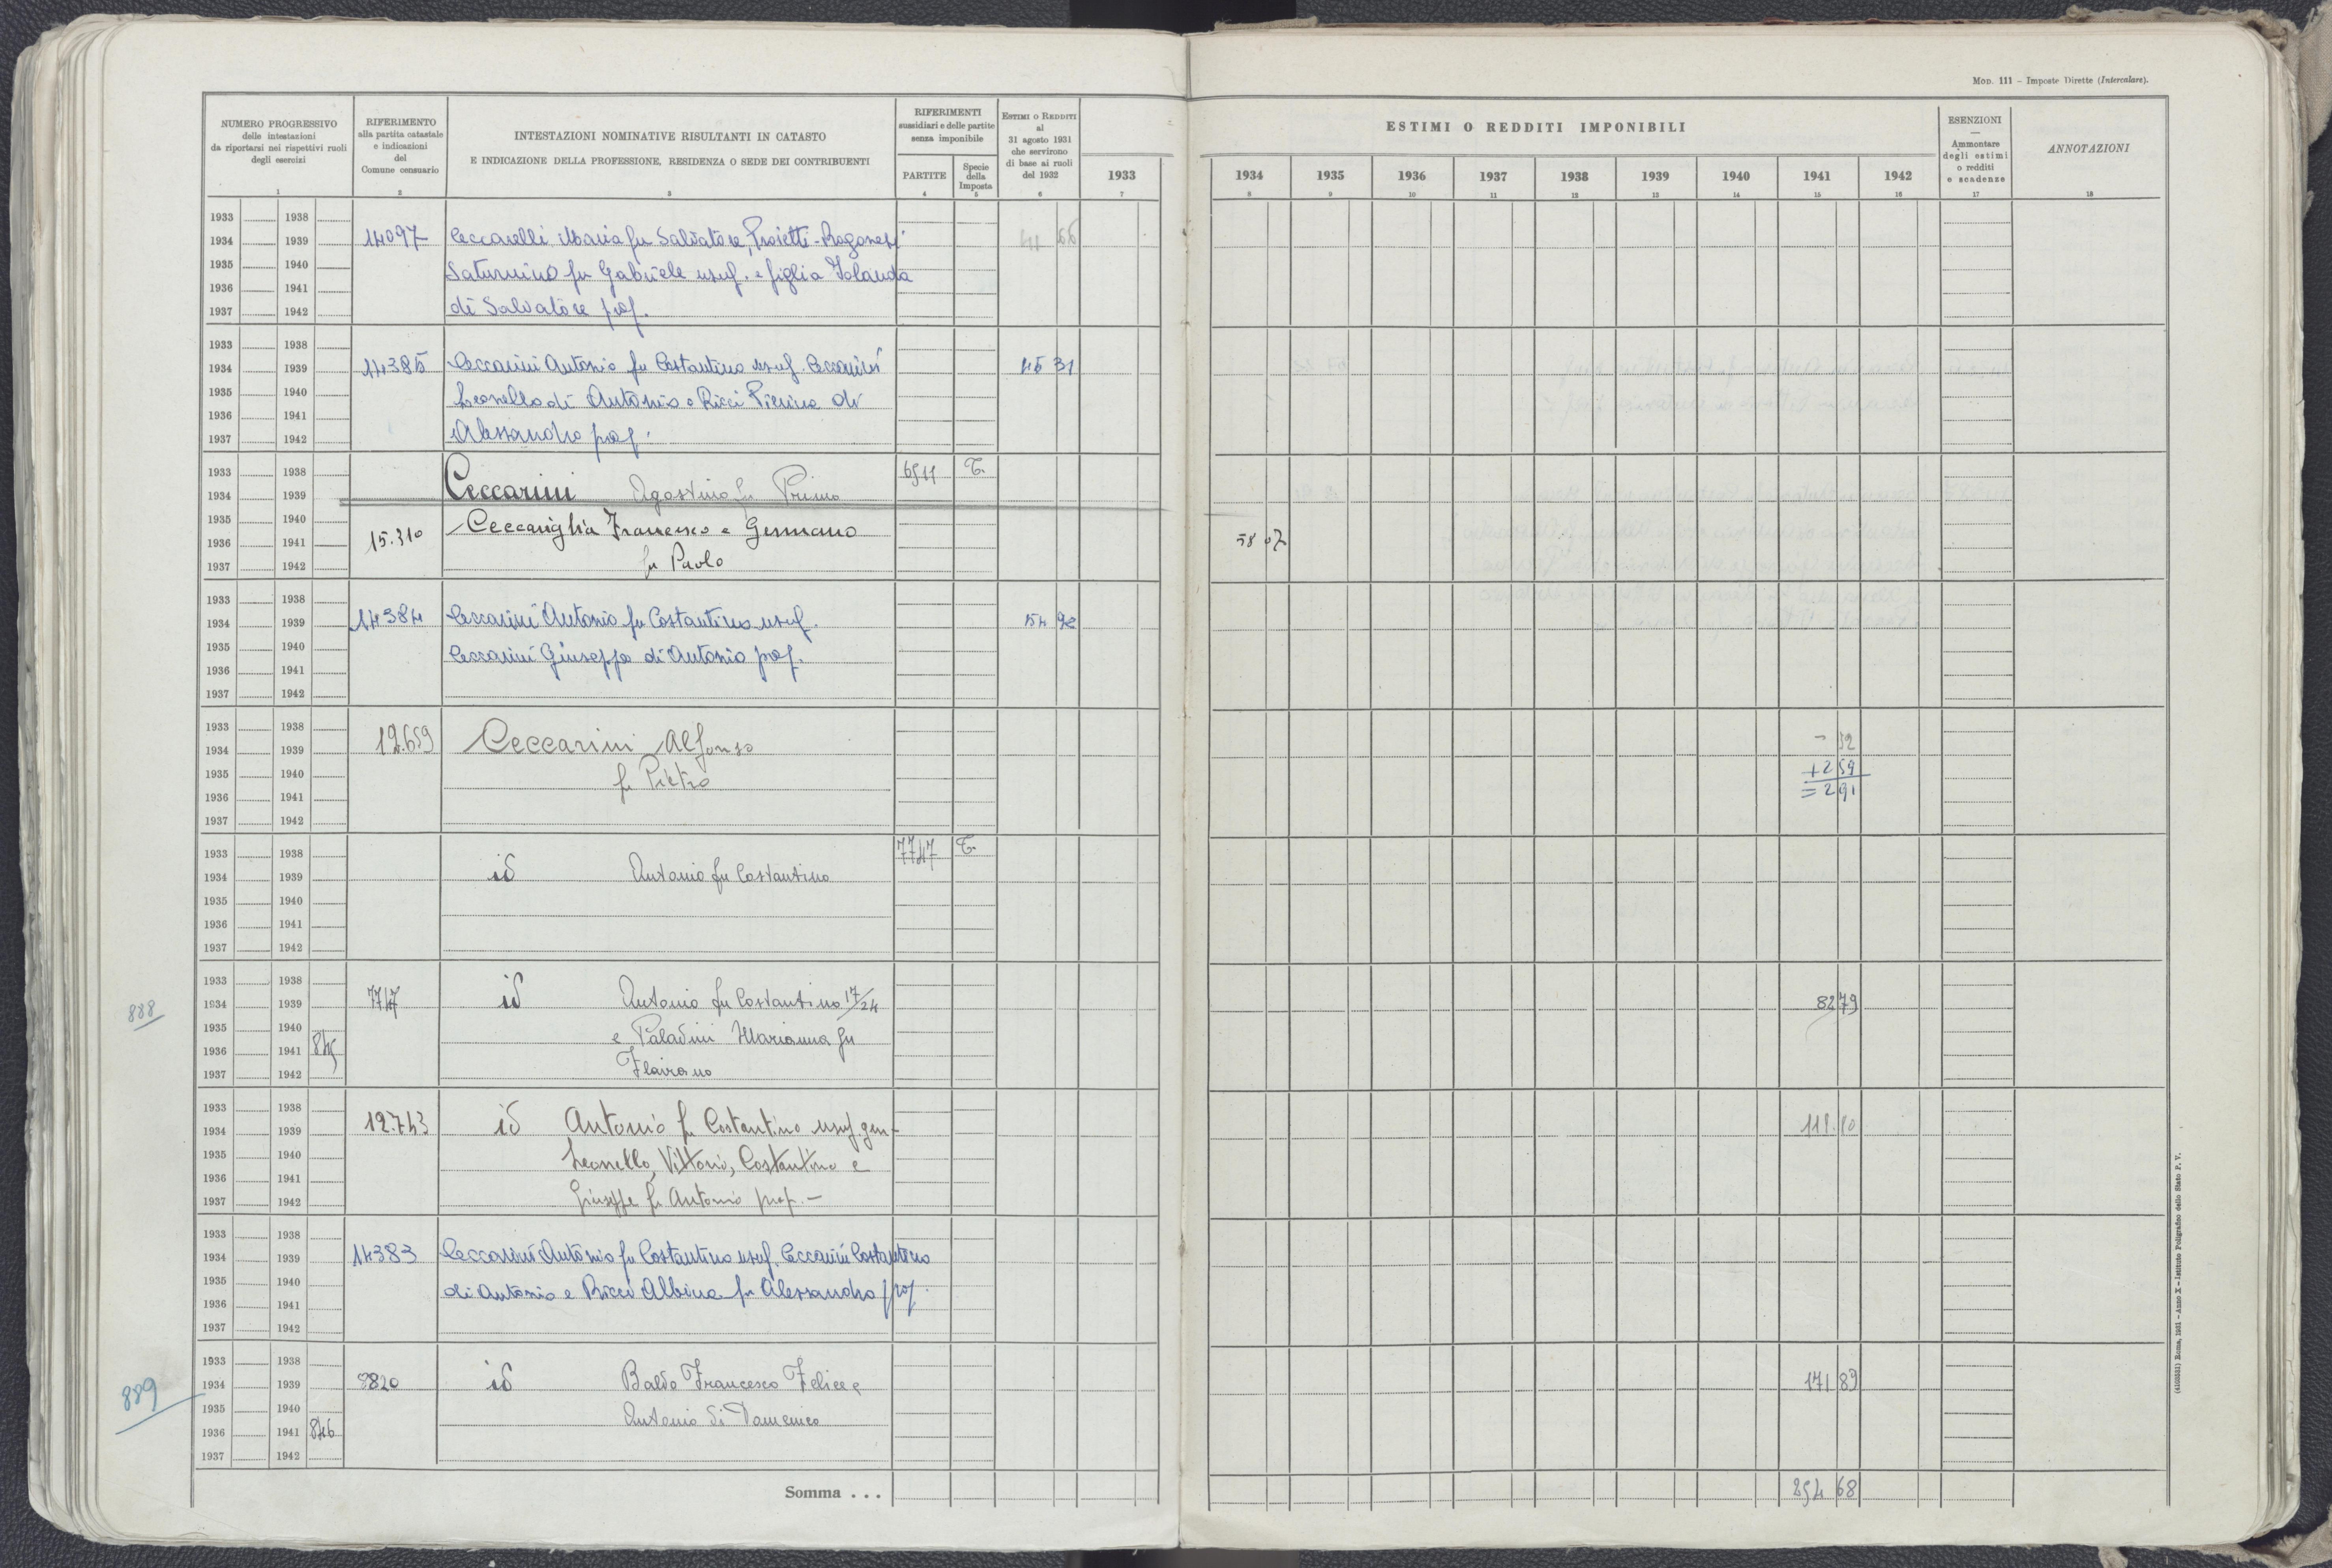 Mod. 111 – Imposte Dirette (Intercalare).
NUMERO PROGRESSIVO
delle intestazioni
da riportarsi nei rispettivi ruoli
degli esercizi
1
RIFERIMENTO
alla partita catastale
e indicazioni
del
Comune censuario
2
INTESTAZIONI NOMINATIVE RISULTANTI IN CATASTO
E INDICAZIONE DELLA PROFESSIONE, RESIDENZA O SEDE DEI CONTRIBUENTI
3
RIFERIMENTI
sussidiari e delle partite
senza imponibile
PARTITE
4
Specie
della
Imposta
5
ESTIMI O REDDITI
al
31 agosto 1931
che servirono
di base ai ruoli
del 1932
6
1933
7
ESTIMI O REDDITI IMPONIBILI
1934 1935 1936 1937 1938 1939 1940 1941 1942
8 9 10 11 12 13 14 15 16
ESENZIONI
—
Ammontare
degli estimi
o redditi
e scadenze
17
ANNOTAZIONI
18
1933 1938
1934 1939 14097 Ceccarelli Maria fu Salvatore, Proietti-Ragonesi 66
1935 1940 Saturnino fu Gabriele usuf. e figlia Iolanda
1936 1941
1937 1942 di Salvatore prop.
1933 1938
1934 1939 14385 Ceccarini Antonio fu Costantino usuf. Ceccarini 45 31
1935 1940 Leonello di Antonio e Ricci Pierina di
1936 1941
1937 1942 Alessandro prop.
1933 1938 6511 T.
1934 1939 Ceccarini Agostino fu Primo
1935 1940 Ceccariglia Francesco e Germano
1936 1941 15.310 58 07
1937 1942 fu Paolo
1933 1938
1934 1939 14384 Ceccarini Antonio fu Costantino usuf. 54 92
1935 1940 Ceccarini Giuseppe di Antonio prop.
1936 1941
1937 1942
1933 1938
1934 1939 12.659 Ceccarini Alfonso – 32
1935 1940 fu Pietro +2 59
1936 1941 = 2 91
1937 1942
1933 1938 7747 T.
1934 1939 id Antonio fu Costantino
1935 1940
1936 1941
1937 1942
1933 1938
888 1934 1939 7747 id Antonio fu Costantino 17/24 82 79
1935 1940 e Paladini Marianna fu
1936 1941 845
1937 1942 Flaviano
1933 1938
1934 1939 12.743 id Antonio fu Costantino usuf. gen- 111.90
1935 1940 Leonello, Vittorio, Costantino e
1936 1941
1937 1942 Giuseppe fu Antonio prop. –
1933 1938
1934 1939 14383 Ceccarini Antonio fu Costantino usuf. Ceccarini Costantino
1935 1940 di Antonio e Ricci Albina fu Alessandro prop.
1936 1941
1937 1942
1933 1938
889 1934 1939 8820 id Baldo Francesco Felice e 171 89
1935 1940 Antonio di Domenico
1936 1941 846
1937 1942
Somma . . . 254 68
(4103531) Roma, 1931 – Anno X – Istituto Poligrafico dello Stato P. V.